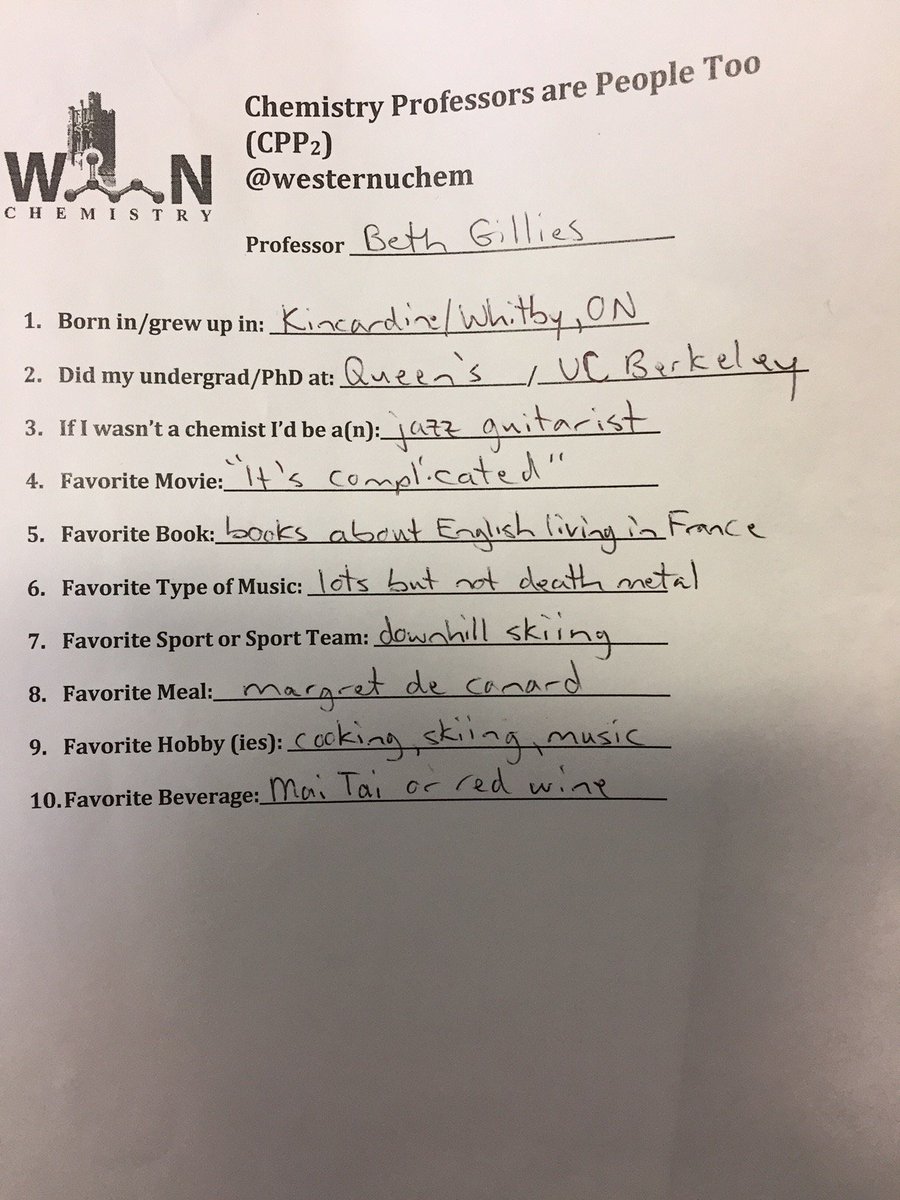 Chemistry Professors are People Too
(CPP₂)
@westernuchem
W N
CHEMISTRY
Professor Beth Gillies
1. Born in/grew up in: Kincardine/Whitby, ON
2. Did my undergrad/PhD at: Queen's / UC Berkeley
3. If I wasn't a chemist I'd be a(n): jazz guitarist
4. Favorite Movie: "It's complicated"
5. Favorite Book: books about English living in France
6. Favorite Type of Music: lots but not death metal
7. Favorite Sport or Sport Team: downhill skiing
8. Favorite Meal: margret de canard
9. Favorite Hobby (ies): cooking, skiing, music
10. Favorite Beverage: Mai Tai or red wine